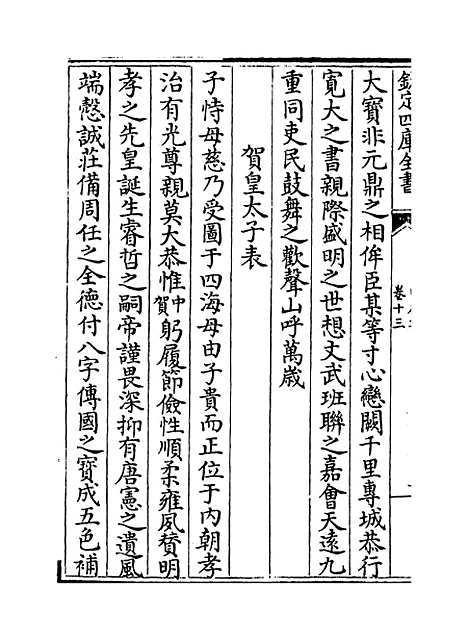 欽定四庫全書
卷十三
大寶非元鼎之相侔臣某等寸心戀闕千里專城恭行
寛大之書親際盛明之世想文武班聯之嘉會天逺九
重同吏民鼓舞之歡聲山呼萬歳
賀皇太子表
子恃母慈乃受圖于四海母由子貴而正位于内朝孝
治有光尊親莫大恭惟中賀躬履節儉性順柔雍夙賛明
孝之先皇誕生睿哲之嗣帝謹畏深抑有唐憲之遺風
端慤誠莊備周任之全德付八字傳國之寳成五色補